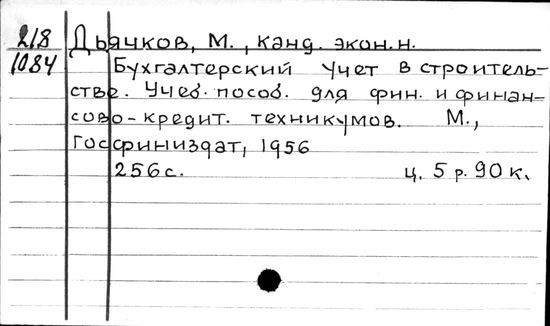 218 Дьячков, М., канд. экон.н.
1084 Бухгалтерский учет в строитель-
стве. Учеб. пособ. для фин. и финан-
сово-кредит. техникумов. М.,
Госфиниздат, 1956
256с. ц. 5 р. 90 к.